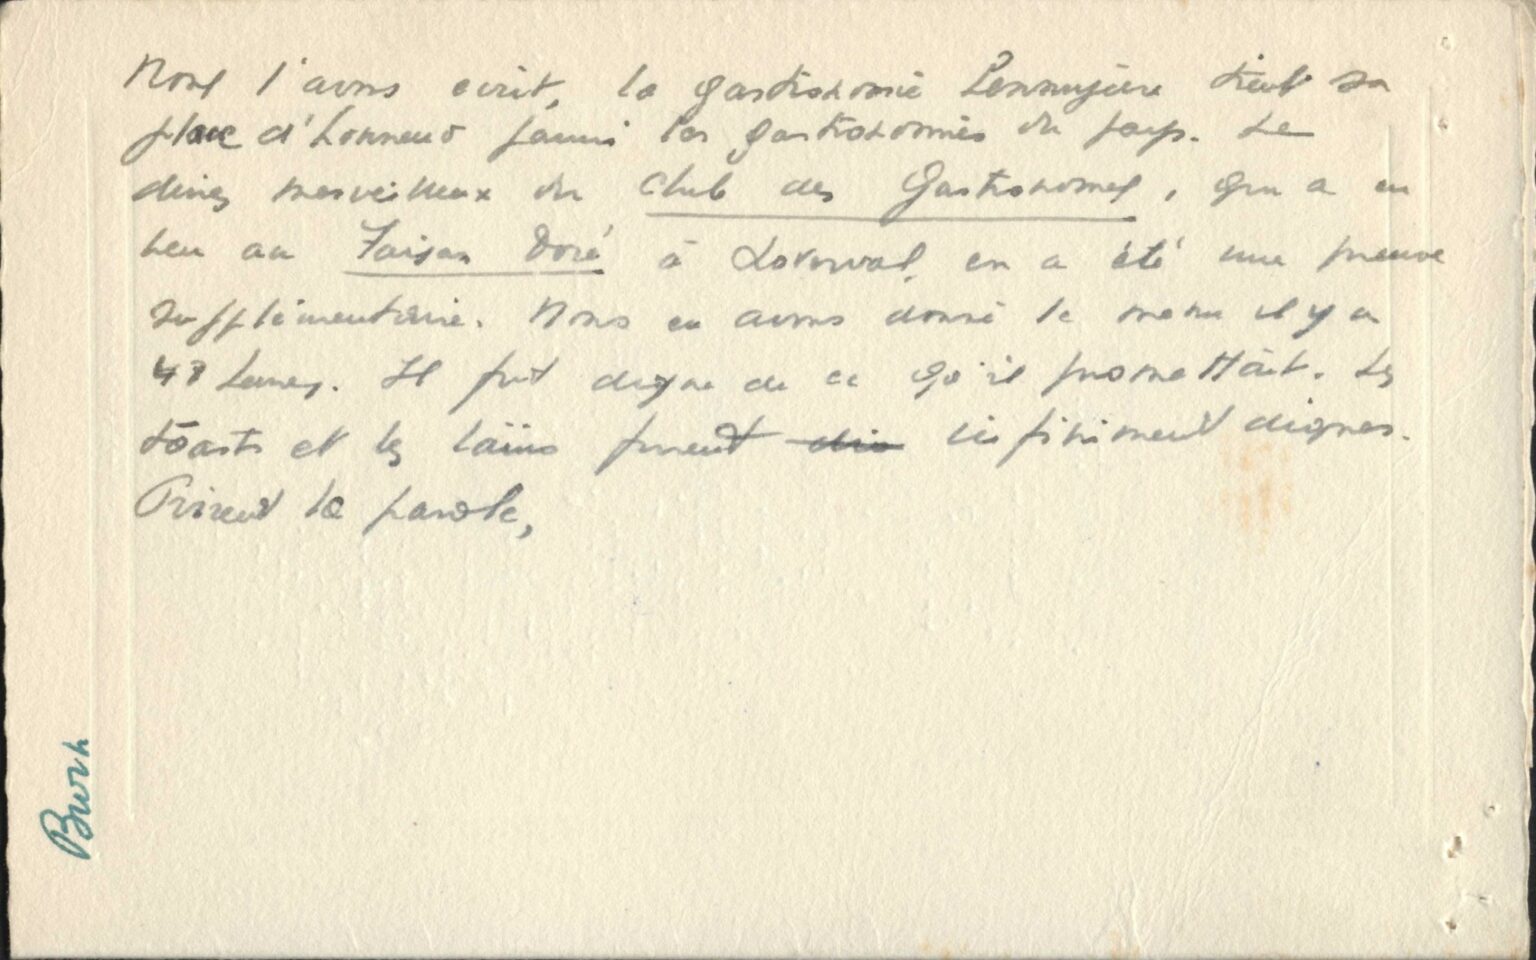 Nous l'avons écrit, la gastronomie tient sa
place d'honneur parmi les gastronomies du pays. Le
diner merveilleux du Club des Gastronomes, qui a eu
lieu au Faisan Doré à Loverval, en a été une preuve
supplémentaire. Nous en avons donné le menu il y a
48 heures. Il fut digne de ce qu'il promettait. Les
toasts et les furent infiniment dignes.
Prirent la parole,
Burh